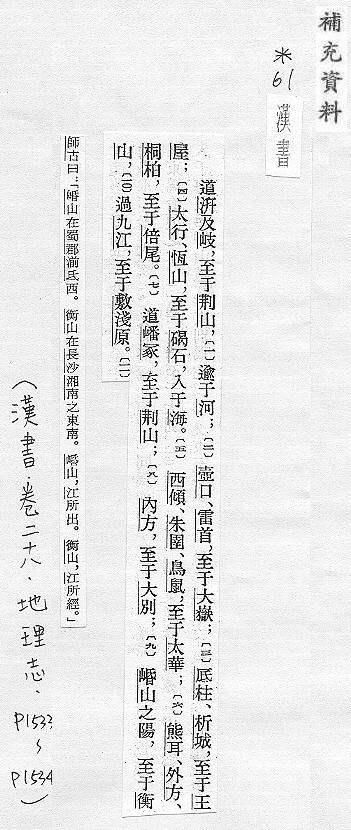 補充資料
＊61
漢書
道汧及岐，至于荆山，〔一〕逾于河；〔二〕壺口、雷首，至于大嶽；〔三〕厎柱、析城，至于王
屋；〔四〕太行、恆山，至于碣石，入于海。〔五〕西傾、朱圉、鳥鼠，至于太華；〔六〕熊耳、外方、
桐柏，至于倍尾。〔七〕道嶓冢，至于荆山；〔八〕內方，至于大別；〔九〕崏山之陽，至于衡
山，〔一〇〕過九江，至于敷淺原。〔一一〕
師古曰：「崏山在蜀郡湔氐西。衡山在長沙湘南之東南。崏山，江所出。衡山，江所經。」
（漢書．卷二十八．地理志．
P1533
～
P1534）